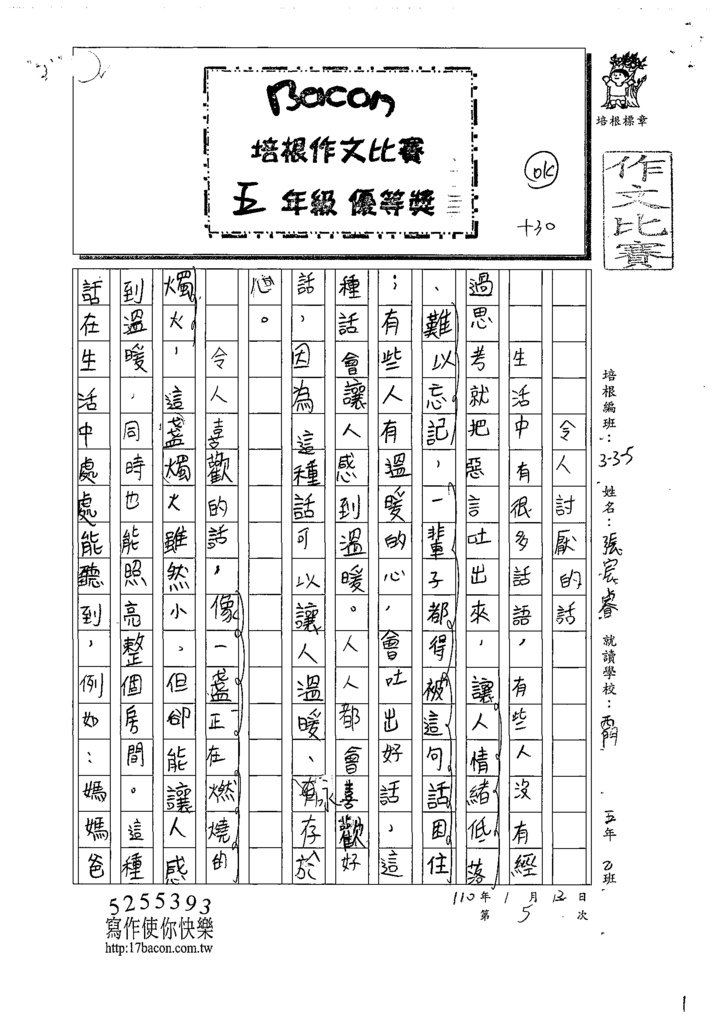 Bacon
培根作文比賽
五年級 優等獎
ok
+30
培根標章
作文比賽
培根編班：3-35 姓名：張宸睿 就讀學校：西門 五年 乙班
令人討厭的話
生活中有很多話語，有些人沒有經
過思考就把惡言吐出來，讓人情緒低落
、難以忘記，一輩子都得被這句話困住
；有些人有溫暖的心，會吐出好話，這
種話會讓人感到溫暖。人人都會喜歡好
話，因為這種話可以讓人溫暖、永存於
心。
令人喜歡的話，像一盞正在燃燒的
燭火，這盞燭火雖然小，但卻能讓人感
到溫暖，同時也能照亮整個房間。這種
話在生活中處處能聽到，例如：媽媽爸
110年1月12日
第5次
5255393
寫作使你快樂
http:17bacon.com.tw
1